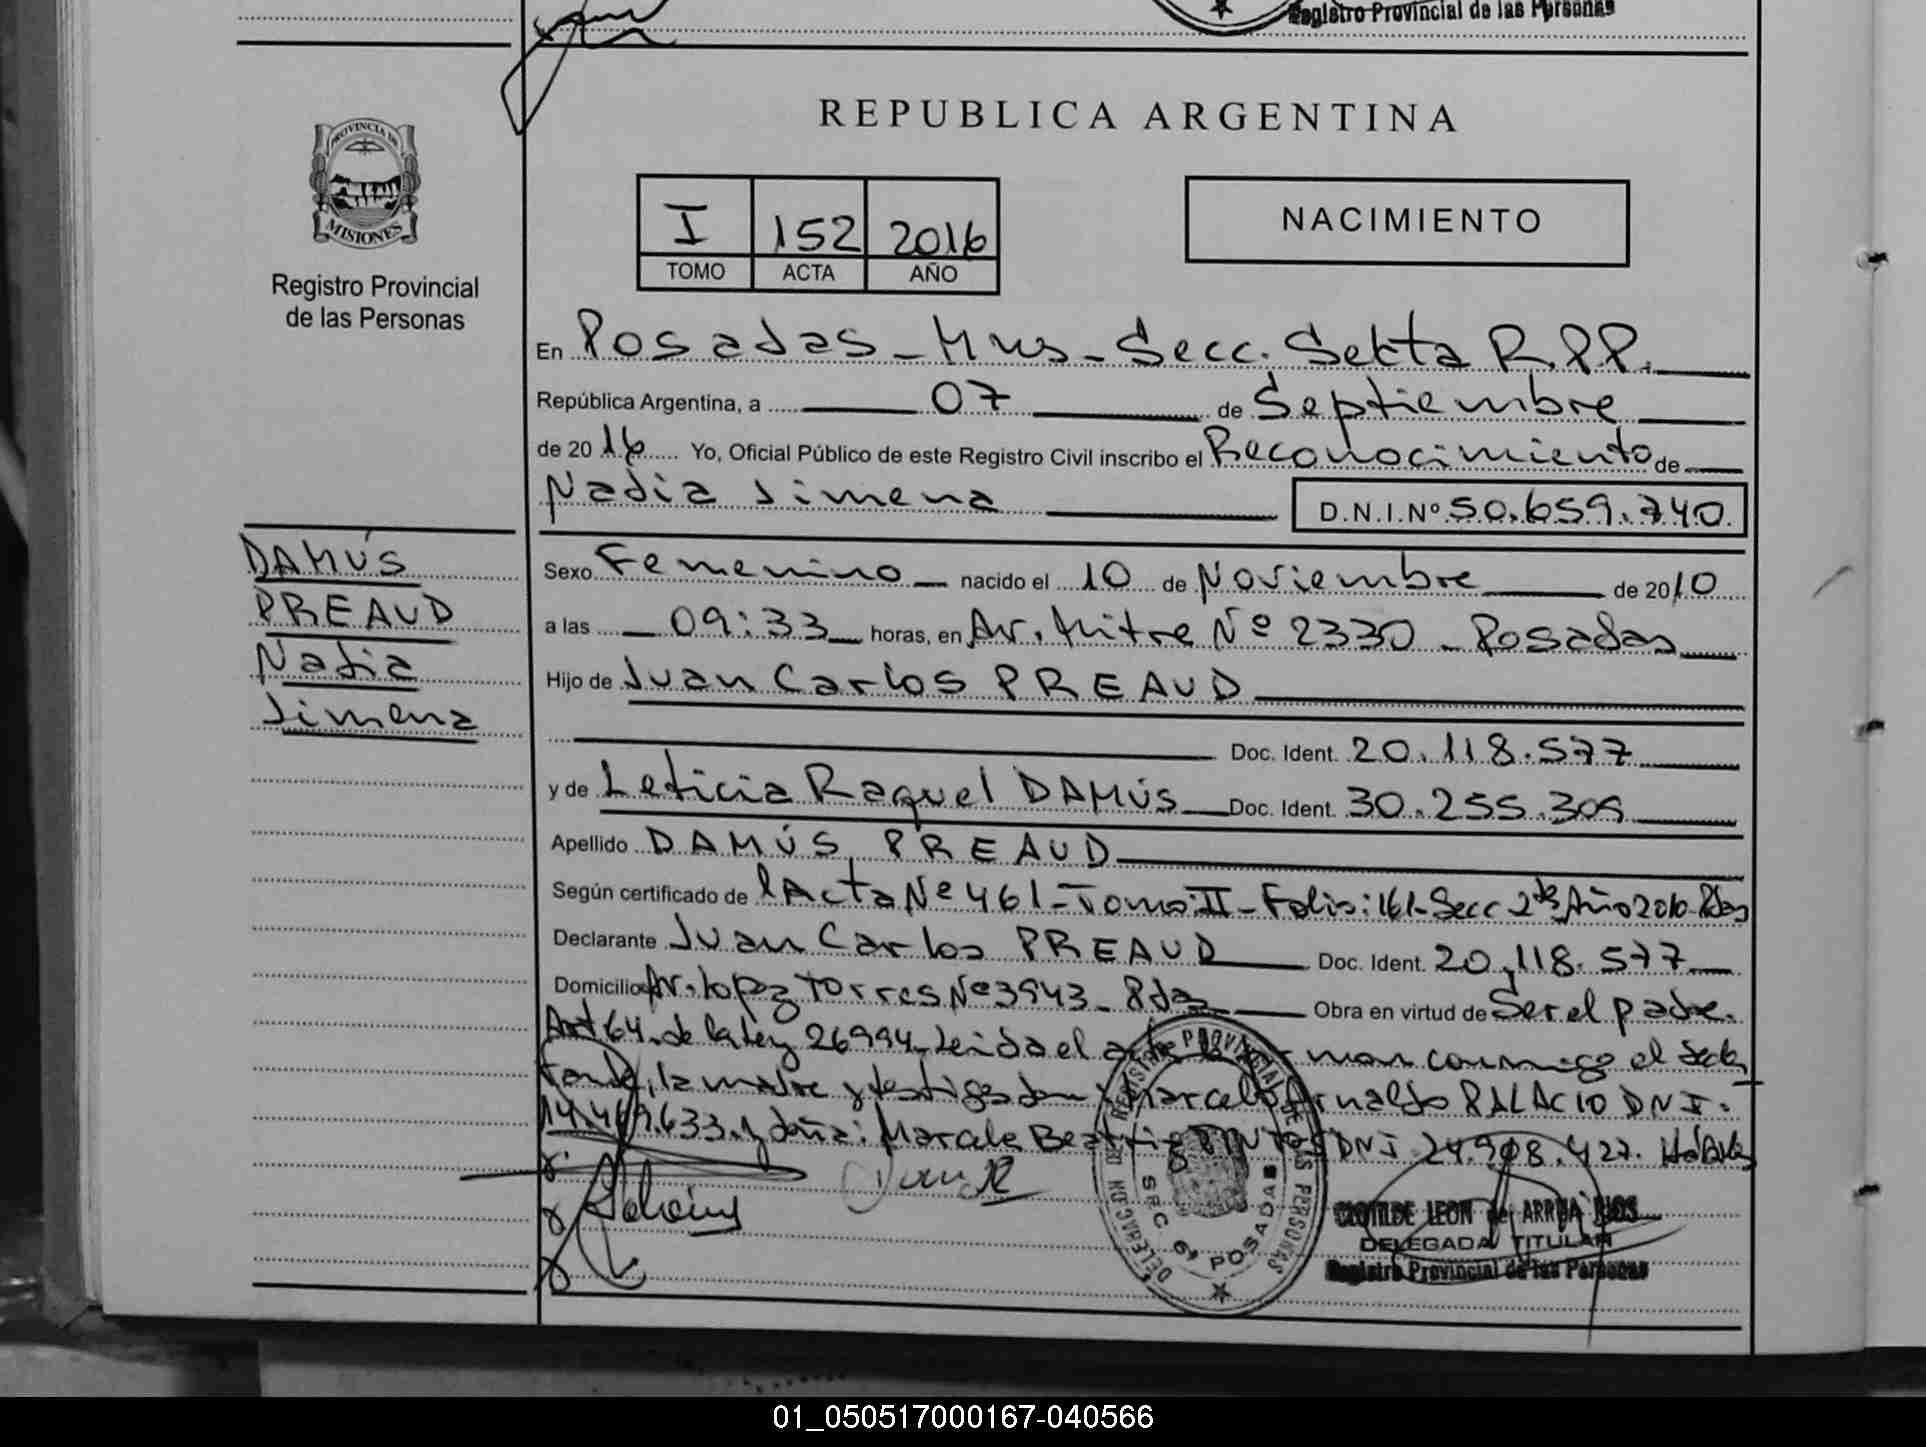 Registro Provincial de las Personas
REPUBLICA ARGENTINA
PROVINCIA DE
MISIONES
Registro Provincial
de las Personas
I 152 2016
TOMO ACTA AÑO
NACIMIENTO
En Posadas - Mnes - Secc. Sexta R.P.P.
República Argentina, a 07 de Septiembre
de 2016 Yo, Oficial Público de este Registro Civil inscribo el Reconocimiento de
Nadia Jimena D.N.I.Nº 50.659.740
DAMÚS
PREAUD
Nadia
Jimena
Sexo Femenino nacido el 10 de Noviembre de 2010
a las 09:33 horas, en Av. Mitre Nº 2330 - Posadas
Hijo de Juan Carlos PREAUD
Doc. Ident. 20.118.577
y de Leticia Raquel DAMÚS Doc. Ident. 30.255.309
Apellido DAMÚS PREAUD
Según certificado de l Acta Nº 461 - Tomo: II - Folio: 161 - Secc 2da Año 2010 - Pdas
Declarante Juan Carlos PREAUD Doc. Ident. 20.118.577
Domicilio Av. Lopez Torres Nº 3943 - Pdas Obra en virtud de Ser el padre.
Art 64. de la Ley 26994. Leida el acta la man conmigo el decla
rante, la madre y testigos don Marcelo Arnaldo PALACIO DNI:
14.469.633. y doña: Marcela Beatriz DNI 24.908.427. Hábiles
DELEGACION DE REGISTRO PROVINCIAL DE LAS PERSONAS
SEC 6ª POSADAS
CLOTILDE LEON de ARRUA RIOS
DELEGADA TITULAR
Registro Provincial de las Personas
01_050517000167-040566